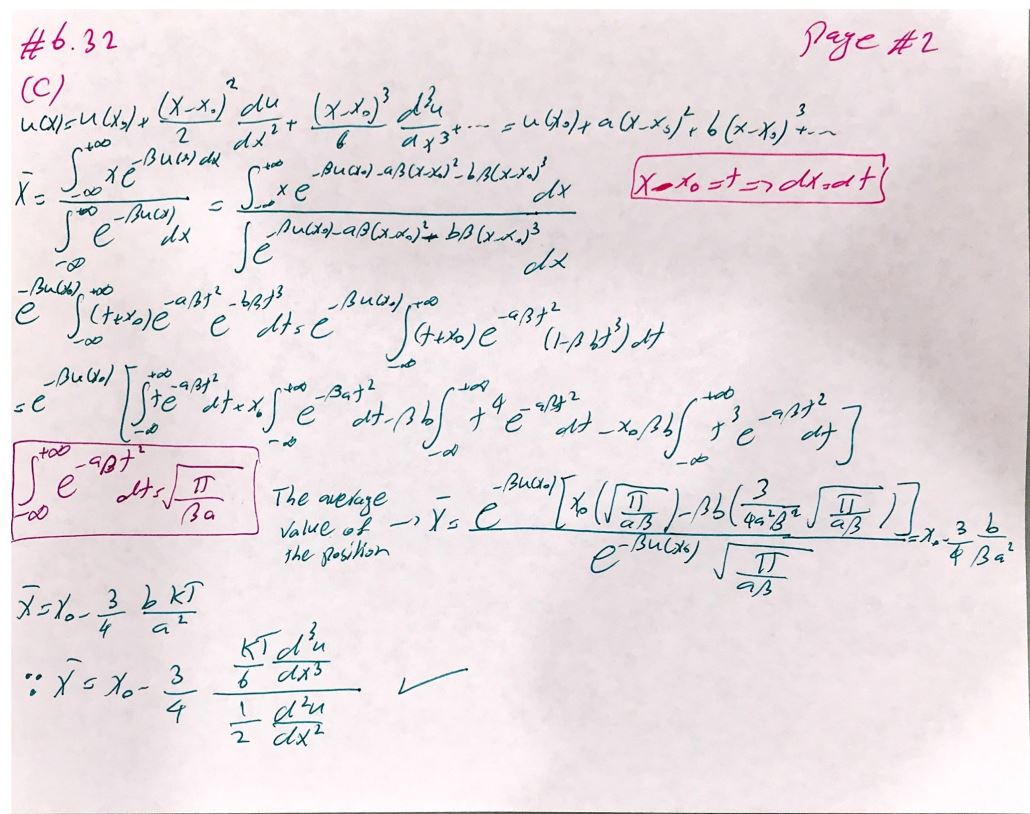 #6.32 Page #2
(C)
u(x)=u(x₀)+ (x-x₀)²/2 du/dx² + (x-x₀)³/6 d³u/dx³ +... = u(x₀)+a(x-x₀)²+b(x-x₀)³+...
x̄ = ∫_{-∞}^{+∞} x e^{-βu(x)} dx / ∫_{-∞}^{+∞} e^{-βu(x)} dx = ∫_{-∞}^{+∞} x e^{-βu(x₀)-aβ(x-x₀)²-bβ(x-x₀)³} dx / ∫ e^{-βu(x₀)-aβ(x-x₀)²+bβ(x-x₀)³} dx
x-x₀=t => dx=dt
e^{-βu(x₀)} ∫_{-∞}^{+∞} (t+x₀)e^{-aβt²} e^{-bβt³} dt = e^{-βu(x₀)} ∫_{-∞}^{+∞} (t+x₀)e^{-aβt²} (1-βbt³)dt
= e^{-βu(x₀)} [ ∫_{-∞}^{+∞} te^{-aβt²} dt + x₀ ∫_{-∞}^{+∞} e^{-βat²} dt - βb ∫_{-∞}^{+∞} t⁴ e^{-aβt²} dt - x₀βb ∫_{-∞}^{+∞} t³ e^{-aβt²} dt ]
∫_{-∞}^{+∞} e^{-aβt²} dt = √(π/βa)
The average
value of
the position
→ x̄ = e^{-βu(x₀)} [x₀(√(π/aβ)) - βb(3/4a²β² √(π/aβ))] / e^{-βu(x₀)} √(π/aβ) = x₀ - 3/4 b/βa²
x̄ = x₀ - 3/4 bkT/a²
∵ x̄ = x₀ - 3/4 (kT/6 d³u/dx³) / (1/2 d²u/dx²) ✓